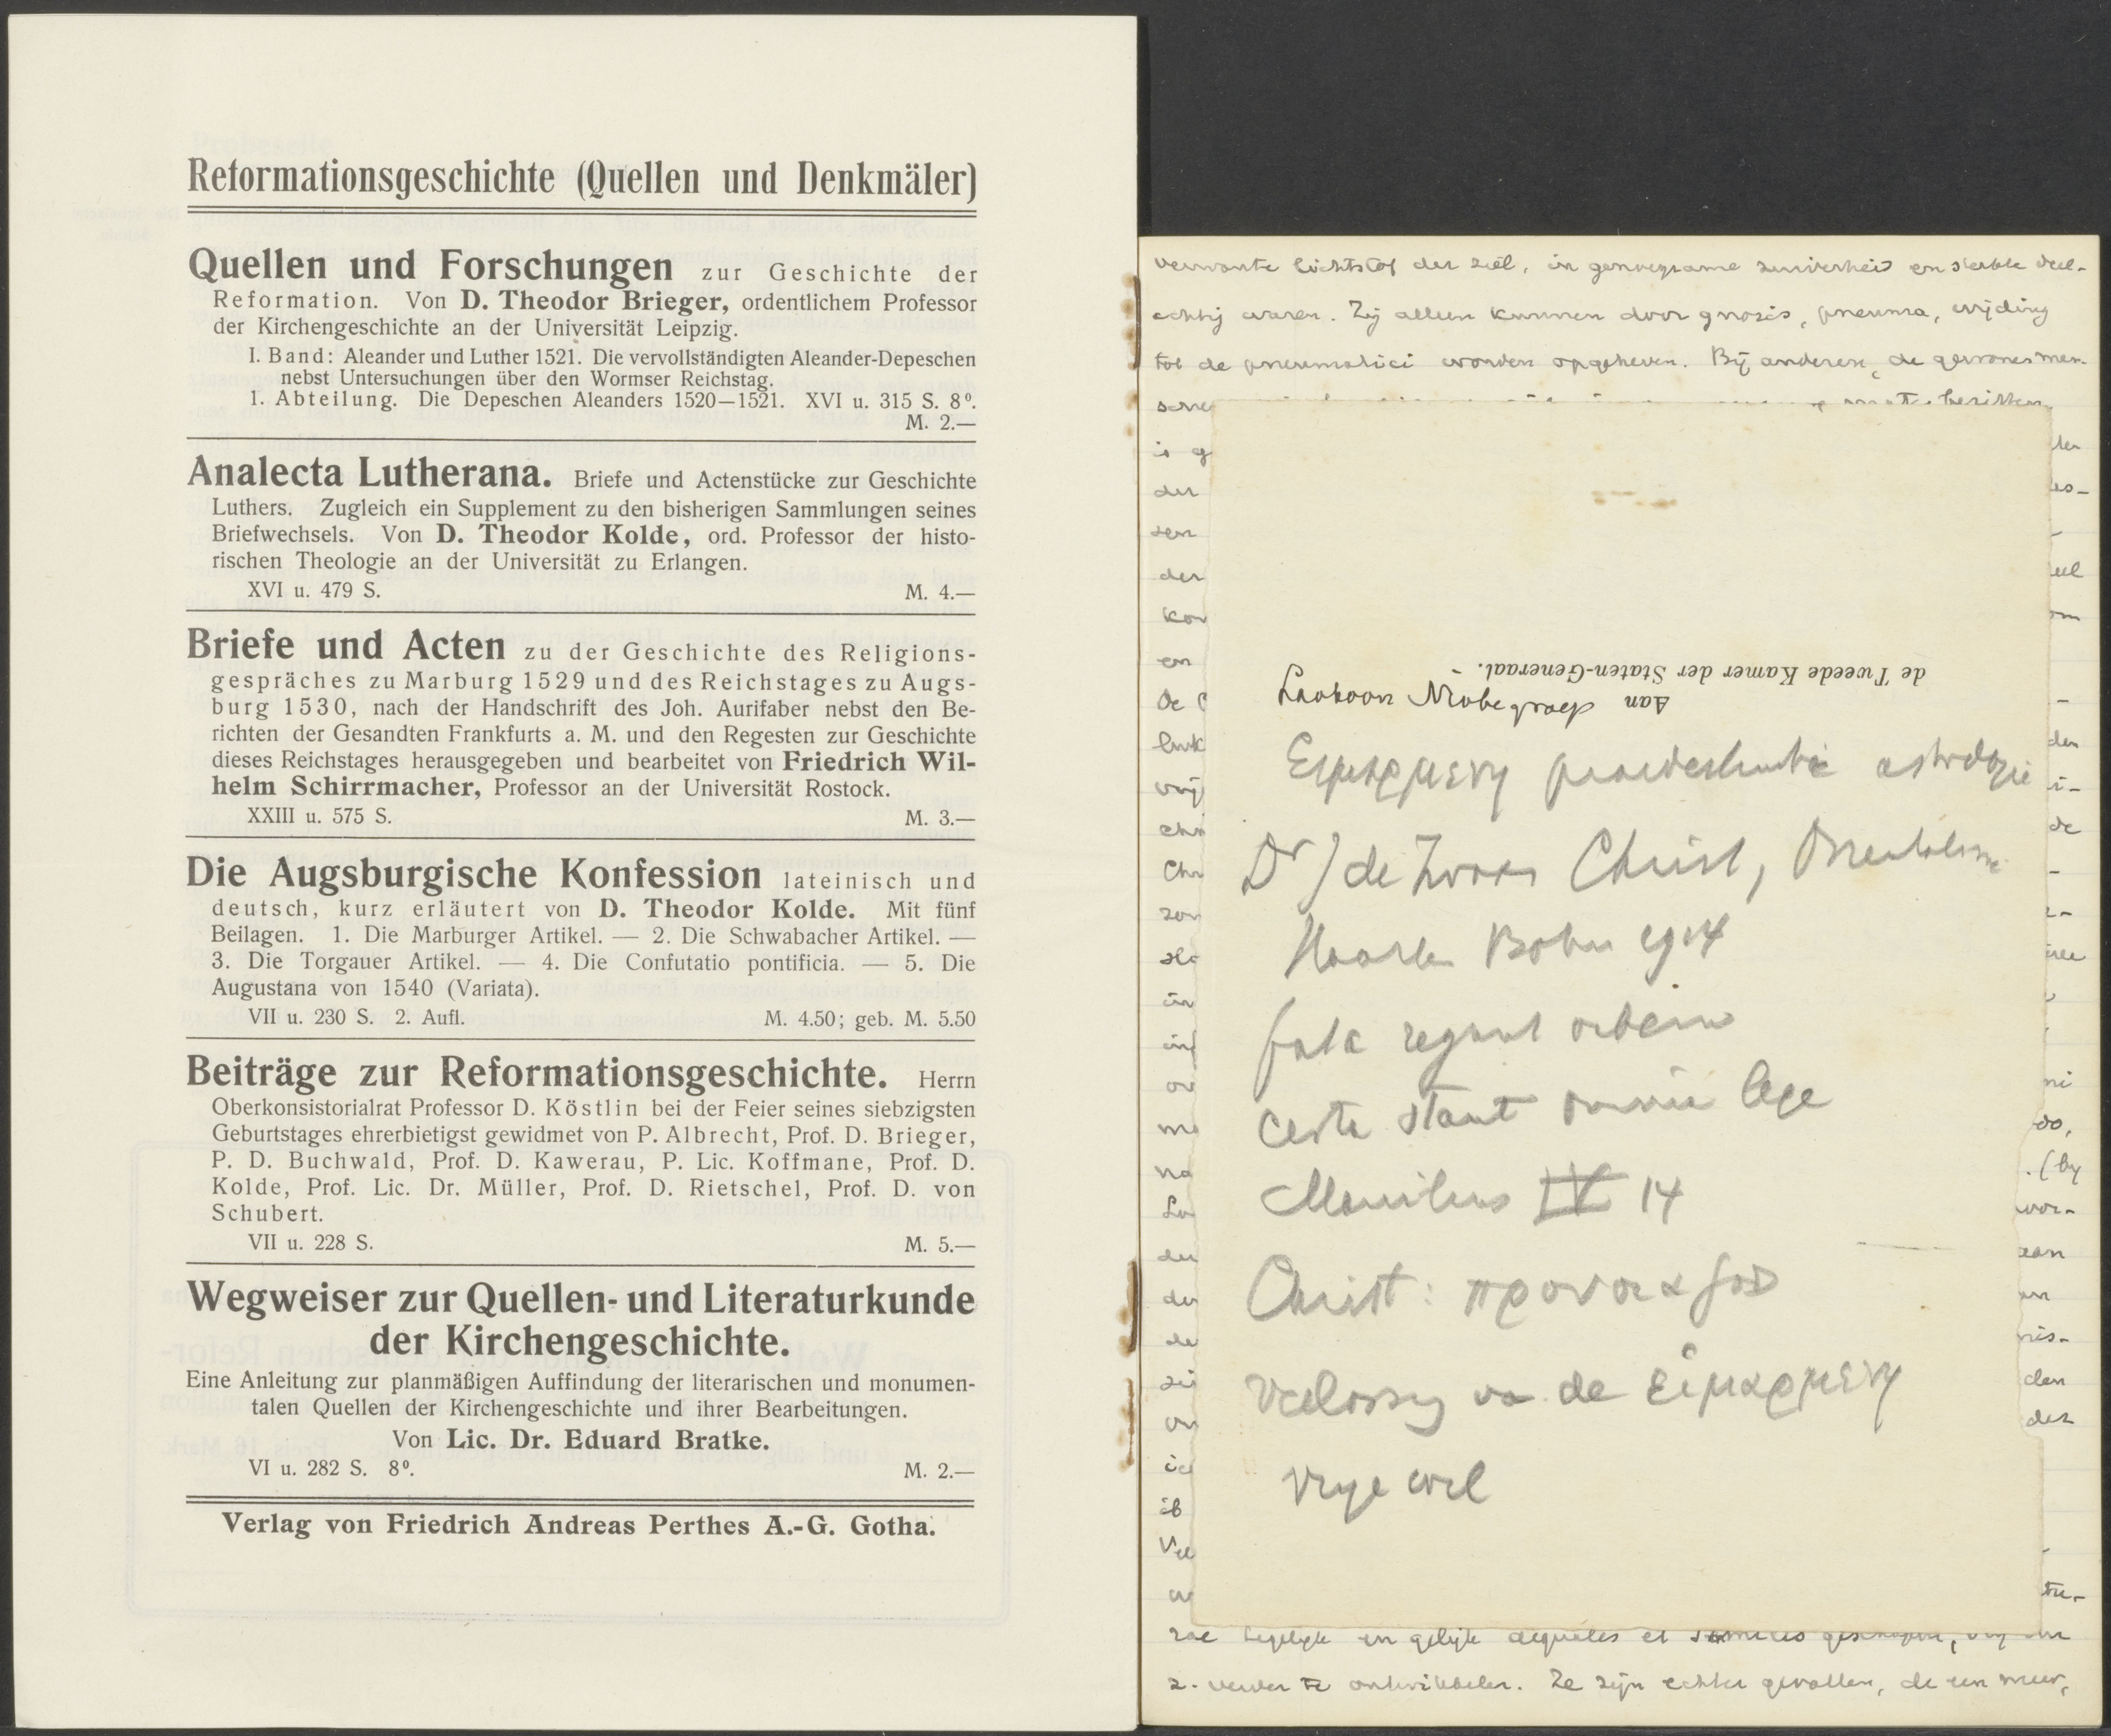 Reformationsgeschichte (Quellen und Denkmäler)
Quellen und Forschungen zur Geschichte der
Reformation. Von D. Theodor Brieger, ordentlichem Professor
der Kirchengeschichte an der Universität Leipzig.
I. Band: Aleander und Luther 1521. Die vervollständigten Aleander-Depeschen
nebst Untersuchungen über den Wormser Reichstag.
1. Abteilung. Die Depeschen Aleanders 1520—1521. XVI u. 315 S. 8⁰.
M. 2.—
Analecta Lutherana. Briefe und Actenstücke zur Geschichte
Luthers. Zugleich ein Supplement zu den bisherigen Sammlungen seines
Briefwechsels. Von D. Theodor Kolde, ord. Professor der histo-
rischen Theologie an der Universität zu Erlangen.
XVI u. 479 S. M. 4.—
Briefe und Acten zu der Geschichte des Religions-
gespräches zu Marburg 1529 und des Reichstages zu Augs-
burg 1530, nach der Handschrift des Joh. Aurifaber nebst den Be-
richten der Gesandten Frankfurts a. M. und den Regesten zur Geschichte
dieses Reichstages herausgegeben und bearbeitet von Friedrich Wil-
helm Schirrmacher, Professor an der Universität Rostock.
XXIII u. 575 S. M. 3.—
Die Augsburgische Konfession lateinisch und
deutsch, kurz erläutert von D. Theodor Kolde. Mit fünf
Beilagen. 1. Die Marburger Artikel. — 2. Die Schwabacher Artikel. —
3. Die Torgauer Artikel. — 4. Die Confutatio pontificia. — 5. Die
Augustana von 1540 (Variata).
VII u. 230 S. 2. Aufl. M. 4.50; geb. M. 5.50
Beiträge zur Reformationsgeschichte. Herrn
Oberkonsistorialrat Professor D. Köstlin bei der Feier seines siebzigsten
Geburtstages ehrerbietigst gewidmet von P. Albrecht, Prof. D. Brieger,
P. D. Buchwald, Prof. D. Kawerau, P. Lic. Koffmane, Prof. D.
Kolde, Prof. Lic. Dr. Müller, Prof. D. Rietschel, Prof. D. von
Schubert.
VII u. 228 S. M. 5.—
Wegweiser zur Quellen- und Literaturkunde
der Kirchengeschichte.
Eine Anleitung zur planmäßigen Auffindung der literarischen und monumen-
talen Quellen der Kirchengeschichte und ihrer Bearbeitungen.
Von Lic. Dr. Eduard Bratke.
VI u. 282 S. 8⁰. M. 2.—
Verlag von Friedrich Andreas Perthes A.-G. Gotha.
verwante lichtstof der ziel, in genoegzame zuiverheid en sterkte deel-
achtig waren. Zij alleen kunnen door gnosis, pneuma, wijding
tot de pneumatici worden opgeheven. Bij anderen, de gewones men-
Aan
de Tweede Kamer der Staten-Generaal.
Laokoon Niobegroep
Ειμαρμενη praedestinatie astrologie
Dr J de Zwaan Christ,
Haarlem Bohn 1914
fata regunt orbem
certa stant omnia lege
Manilius IV 14
Christ: προνοια God
verlossing va de εἱμαρμενη
vrije wil
en gelijk aequales et
z. verder te ontwikkelen. Ze zijn echter gevallen, de een meer,